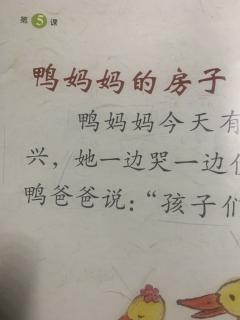 第5课
鸭妈妈的房子
鸭妈妈今天有
兴，她一边哭一边
鸭爸爸说：“孩子们